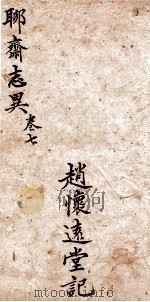 聊齋志異 卷七
趙懷遠堂記
mtoou.info